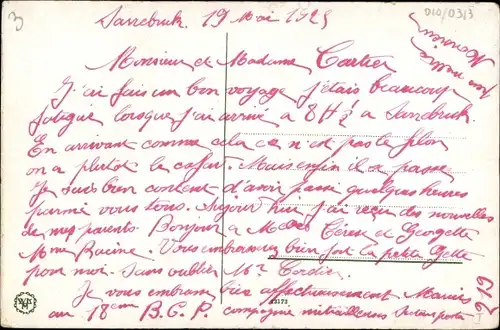 3
Sarrebruk. 19 Mai 1925
D10/0313
Monsieur et Madame Cartier
J'ai fais un bon voyage j'étais beaucoup
fatigué lorsque j'ai arrivé a 8H 1/2 a Sarrebruk.
En arrivant comme cela ce n'est pas le filon
on a plutot le cafard. Mais enfin il a passé
Je suis bien content d'avoir passé quelques heures
parmé vous tous. Aujour'hui j'ai reçu des nouvelles
de mes parents. Bonjour a et Georgette
Mme Racine Vous embrasserez bien fort la petite
pour moi. Sans oublier Mr Cordier.
Je vous embrasse bien affectueusement Maurice
au 18em B.C.P. compagnie mitrailleuses